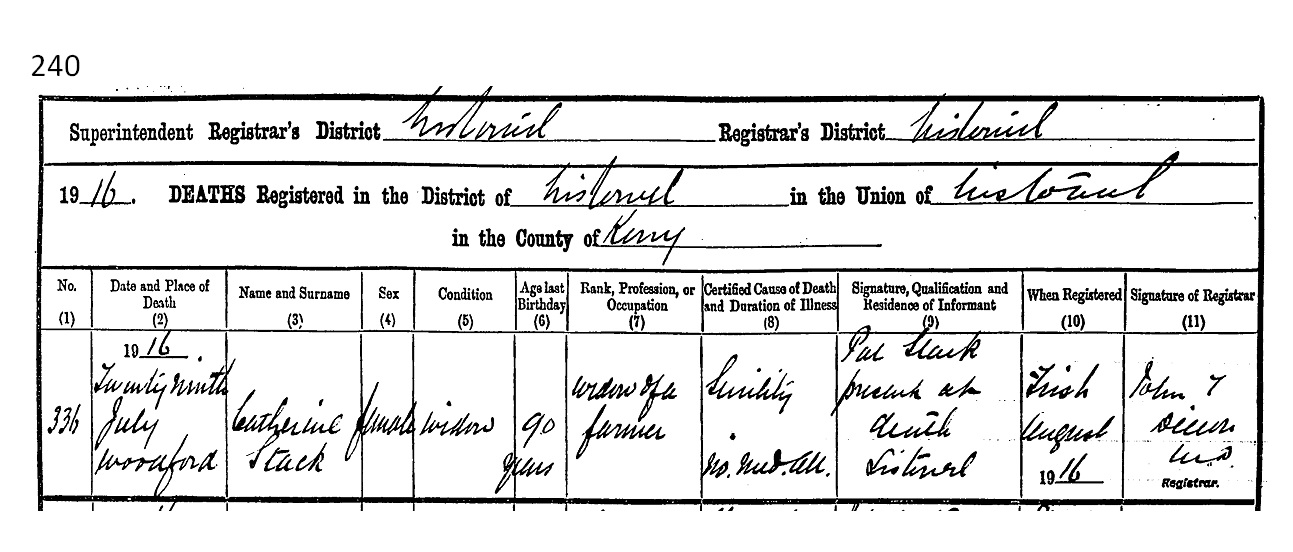 240
Superintendent Registrar's District Listowel Registrar's District Listowel
19 16. DEATHS Registered in the District of Listowel in the Union of Listowel
in the County of Kerry
No. (1) Date and Place of Death (2) Name and Surname (3) Sex (4) Condition (5) Age last Birthday (6) Rank, Profession, or Occupation (7) Certified Cause of Death and Duration of Illness (8) Signature, Qualification and Residence of Informant (9) When Registered (10) Signature of Registrar (11)
336
19 16.
Twenty Ninth
July
Woodford
Catherine
Stack
female
widow
90
years
widow of a
farmer
Senility
No. Med. Att.
Pat Stack
present at
death
Listowel
First
August
19 16
John
Dillon
M.D.
Registrar.